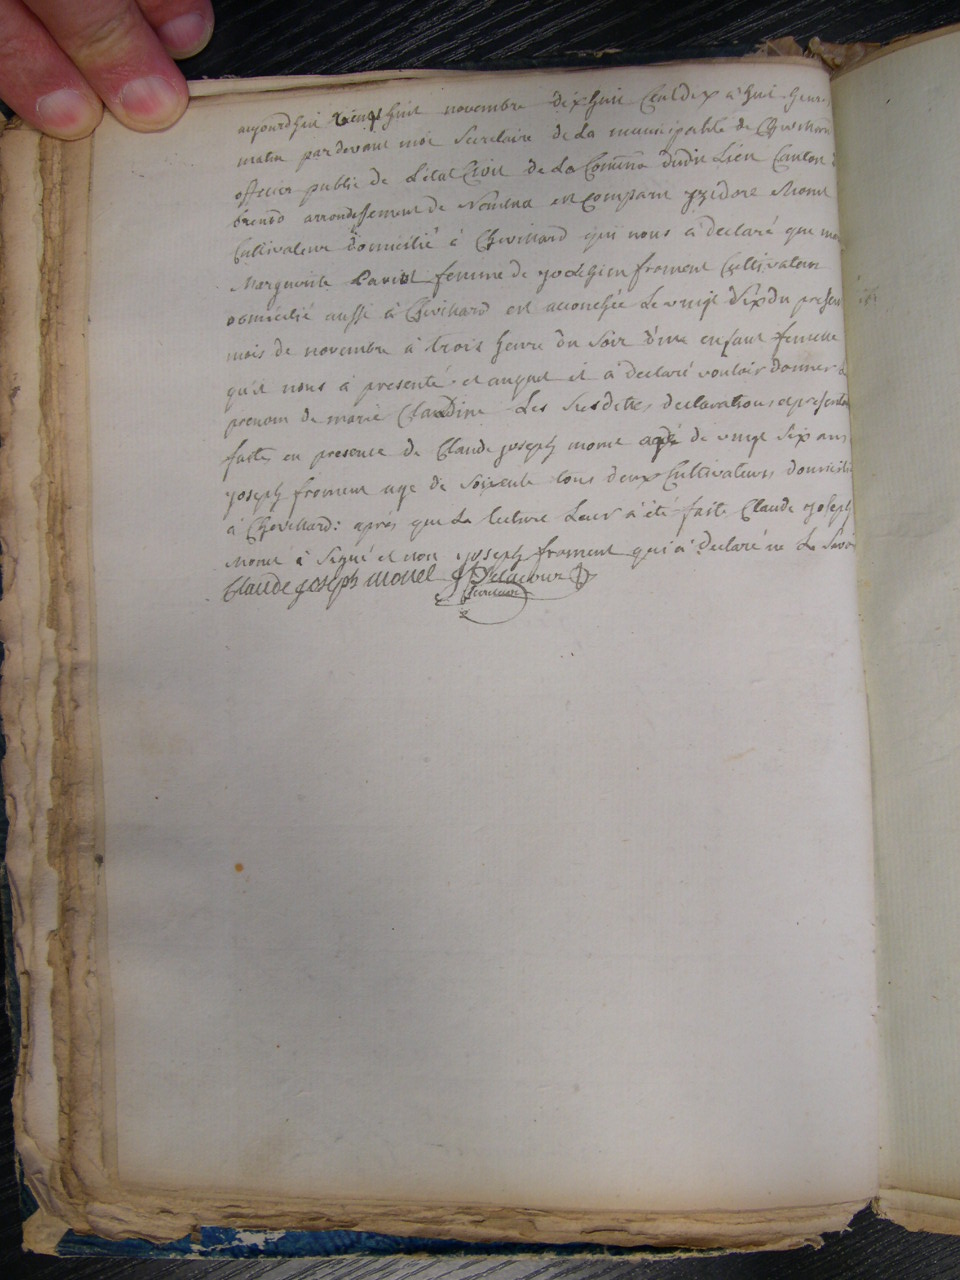 aujourdhui vingt huit novembre dix huit Cent dix à huit heures
matin pardevant moi Secretaire de La municipalité de Chevillard
officier public de L'état Civil de La Commune dudit Lieu Canton
brenod arrondissement de Nantua est comparu yzidore Monet
Cultivateur domicilié à Chevillard qui nous à declaré que
Marguerite femme de joachim froment Cultivateur
domicilié aussi à Chevillard est accouchée Le vingt Six du presen
mois de novembre à trois heure du Soir d'une enfant femelle
qu'il nous à presenté et auquel il à declaré vouloir donner
prenom de marie Claudine Les Susdittes declarations et presentation
faites en presence de Claude joseph monet agé de vingt Six ans
joseph froment age de Soixente tous deux Cultivateurs domicilié
à Chevillard: aprés que La lecture Leur à été faite Claude joseph
monet à Signé et non joseph froment qui à declaré ne Le Savoi
Claude joseph monet Delacour
Secretaire